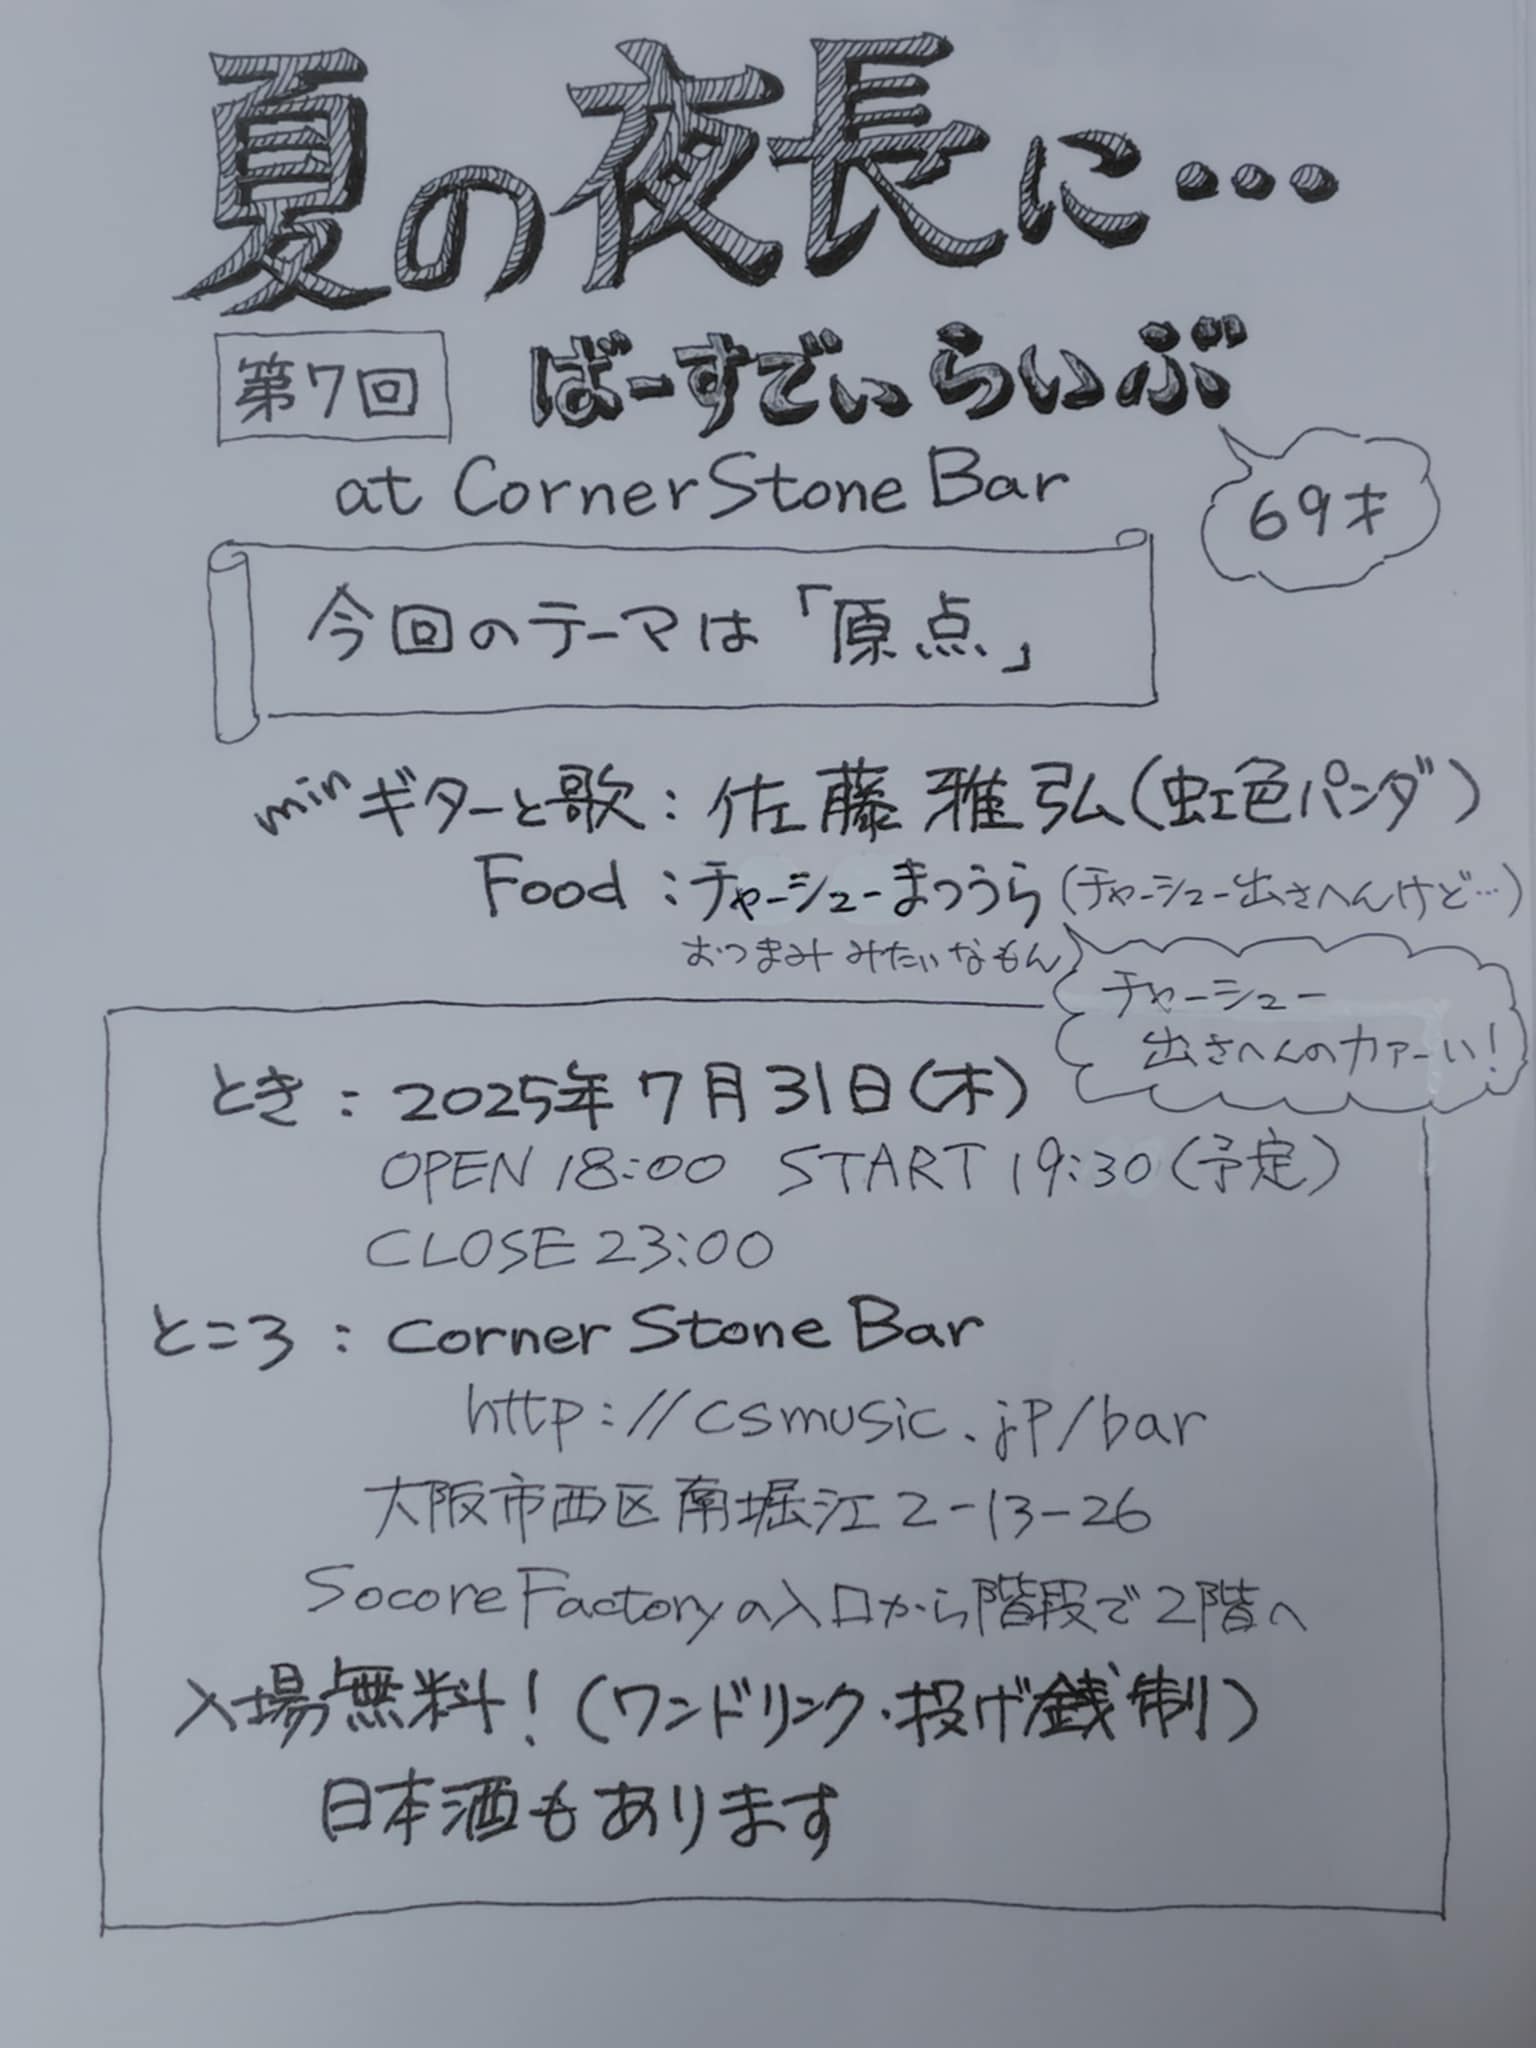 夏の夜長に…
第7回 ばーすでぃ らいぶ
at Corner Stone Bar
69才
今回のテーマは「原点」
min ギターと歌：佐藤 雅弘（虹色パンダ）
Food：チャーシューまつうら（チャーシュー出さへんけど…）
おつまみ みたいなもん
チャーシュー
出さへんのカァーい！
とき：2025年7月31日（木）
OPEN 18:00 START 19:30（予定）
CLOSE 23:00
ところ：Corner Stone Bar
http://csmusic.jp/bar
大阪市西区南堀江2-13-26
Socore Factoryの入口から階段で2階へ
入場無料！（ワンドリンク・投げ銭制）
日本酒もあります